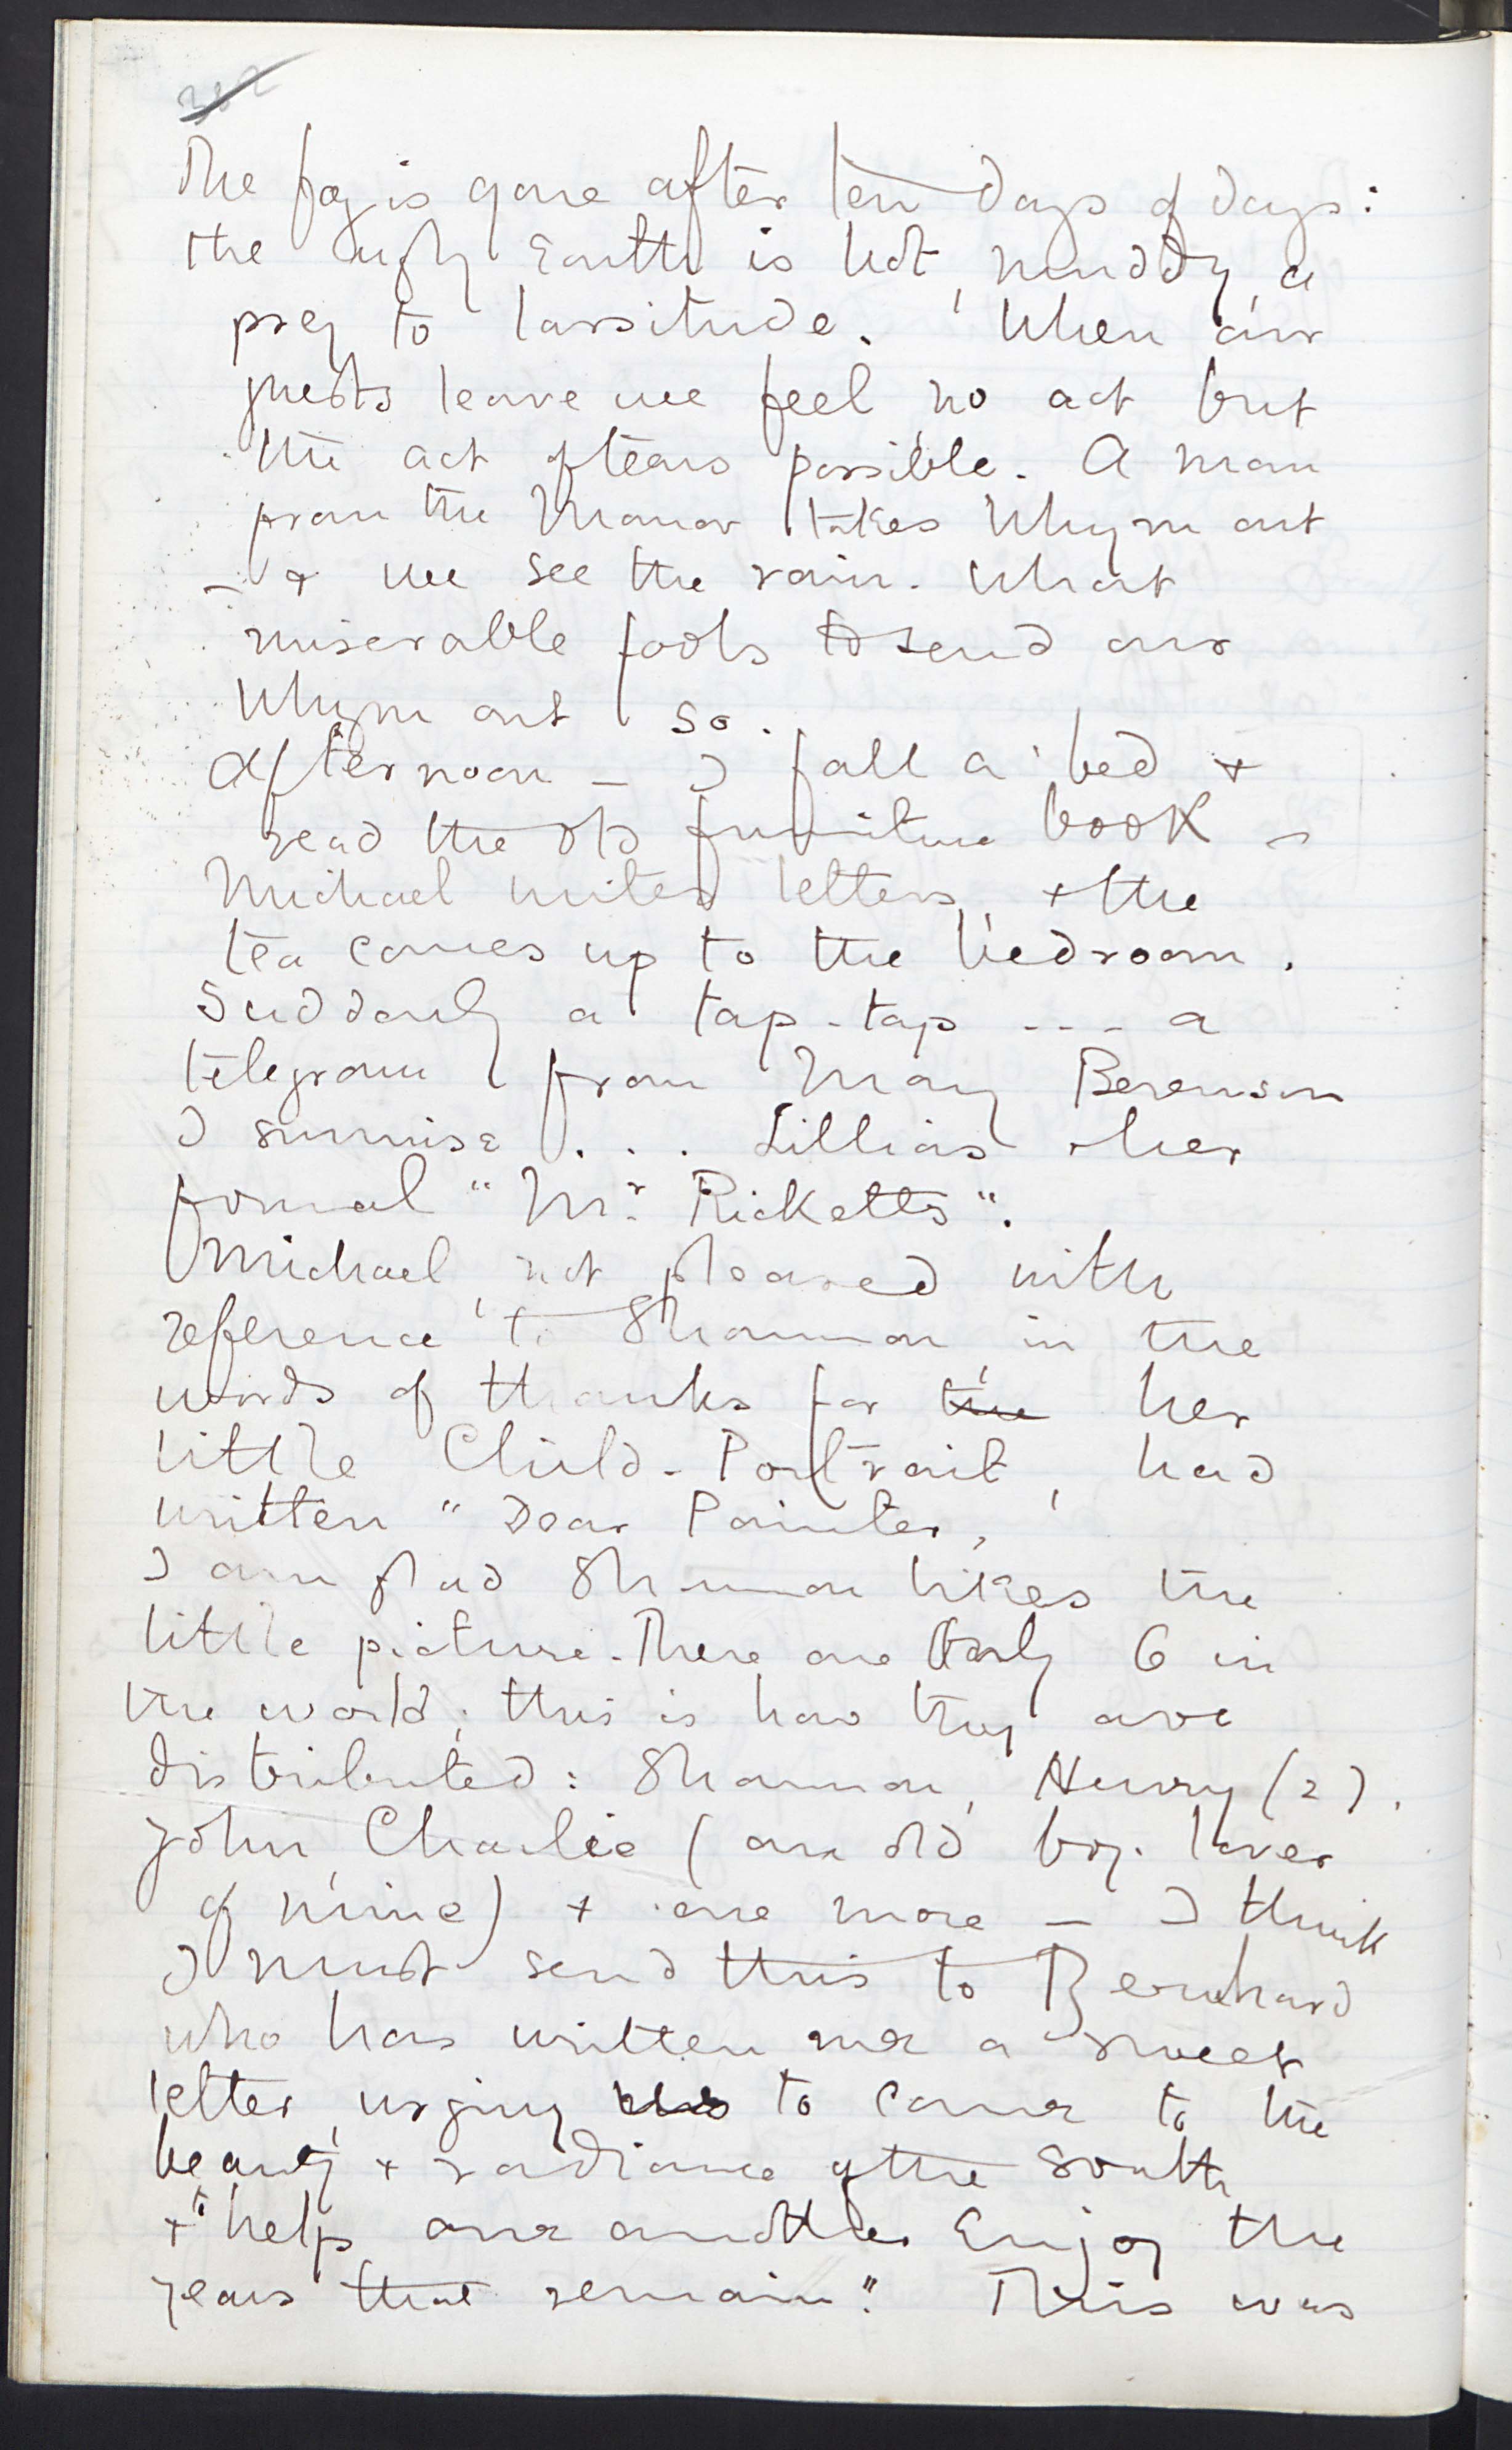 The fog is gone after ten days of days:
the ugly Earth is hot, muddy, a
prey to lassitude. When our
guests leave we feel no act but
the act of tears possible. A man
from the Manor takes Whym out
– & we see the rain. What
miserable fools to send our
Whym out so.
Afternoon – I fall a'bed &
read the old furniture book –
Michael writes letters, & the
tea comes up to the bedroom.
Suddenly a tap-tap --- a
telegram from Mary Berenson
I surmise . . . Lillias & her
formal "Mr. Ricketts".
Michael, not pleased with
reference to Shannon in the
words of thanks for the her
little Child-Portrait, had
written "Dear Painter,
I am glad Shannon likes the
little picture. There are only 6 in
the world; this is how they are
distributed: Shannon, Henry (2),
John, Charlie (an old boy-lover
of mine) & one more – I think
I must send this to Bernhard
who has written me a sweet
letter, urging us to come to the
beauty & radiance of the South
& "to help one another enjoy the
years that remain." This was